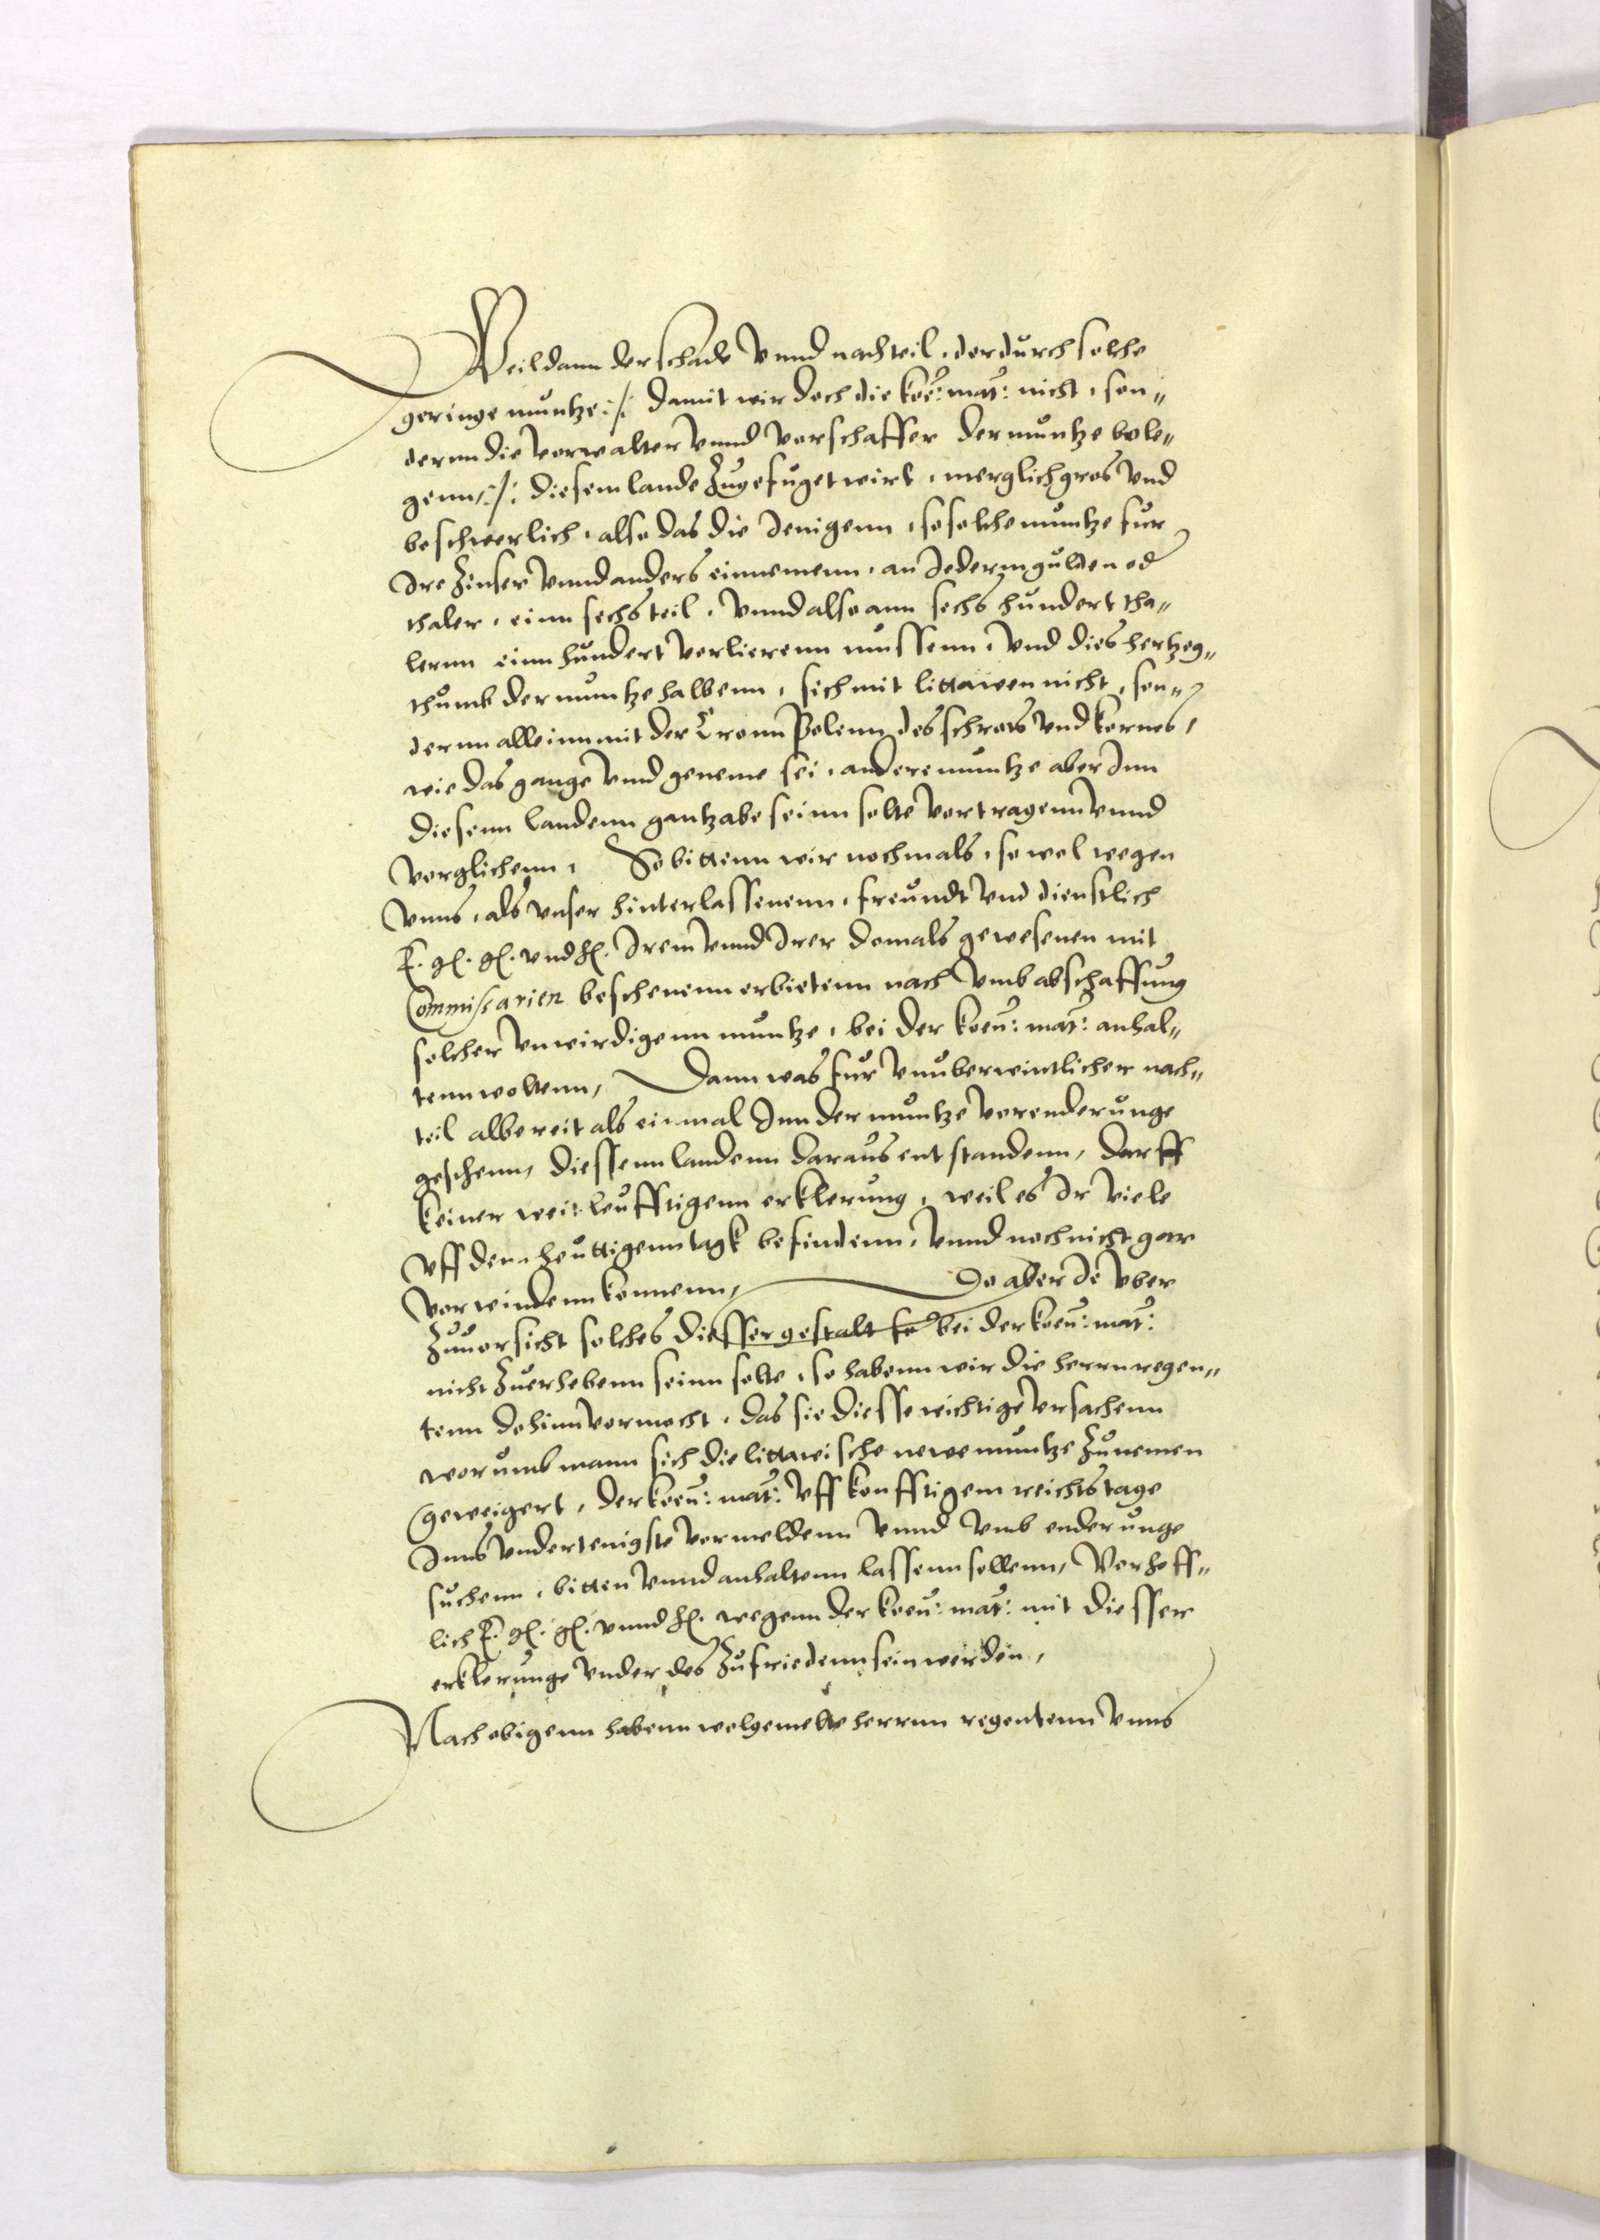 Weil dann der schade vnnd nachteil, der durch solche
geringe muntze :/: damit wir doch die koe: mat: nicht, son„
dernn die verwalter vnnd vorschaffer der muntze bele„
genn :/: diesem lande zugefuget wirt, merglich gros vnd
beschwerlich, also das die Jenigenn, so solche muntze fur
Jre Zinser vnnd anders einnemenn, an Jederm gulden od
thaler, einn sechsteil, vnnd also ann sechs hundert tha„
lernn einn hundert verlierenn mussenn, vnd dies hertzog„
thumb der muntze halbenn, sich mit littawen nicht, son„
dernn alleinn mit der Cronn Polenn des schrots vnd kornes,
wie das gange vnnd geneme sei, andere muntze aber Jnn
diesenn landenn gantz abe seinn solte vertragenn vnnd
verglichenn, So bittenn wir nochmals, so wol wegen
vnns, als vnser hinterlassenenn, freundt vnd dienstlich
E. gl. gl. vnd hl. Jrem vnnd Jrer domals gewesenen mit
Commissarien beschenenn erbietenn nach vmb abschaffung
solcher vnwirdigenn muntze, bei der koeu: mat: anhal„
tenn woltenn, Dann was fur vnuberwintlicher nach„
teil albereit als einmal Jnn der muntze verenderunge
geschenn, diessenn landenn daraus entstandenn, darff
keiner weitleufftigenn erklerung, weil es Jr viele
vff denn heuttigenn tagk befindenn, vnnd noch nicht gar
verwindenn konnenn, Do aber Je vber
Zuuorsicht solches diesser gestalt so bei der koeu: mat:
nicht Zuerhebenn seinn solte, so habenn wir die herrn regen„
tenn dohinn vermocht, das sie diesse wichtige vrsachenn
worumb mann sich die littawische newe muntze Zunemen
geweigert, der koeu: mat: vff konfftigem reichstage
Jnns vndertenigste vermeldenn vnnd vmb enderunge
suchenn, bitten vnnd anhaltenn lassenn sollenn, Verhoff„
lich E. gl. gl. vnnd hl. wegenn der koeu: mat: mit diesser
erklerunge vnder des Zufriedenn sein werden,
Nach obigenn habenn wolgemelte herrnn regentenn vnns